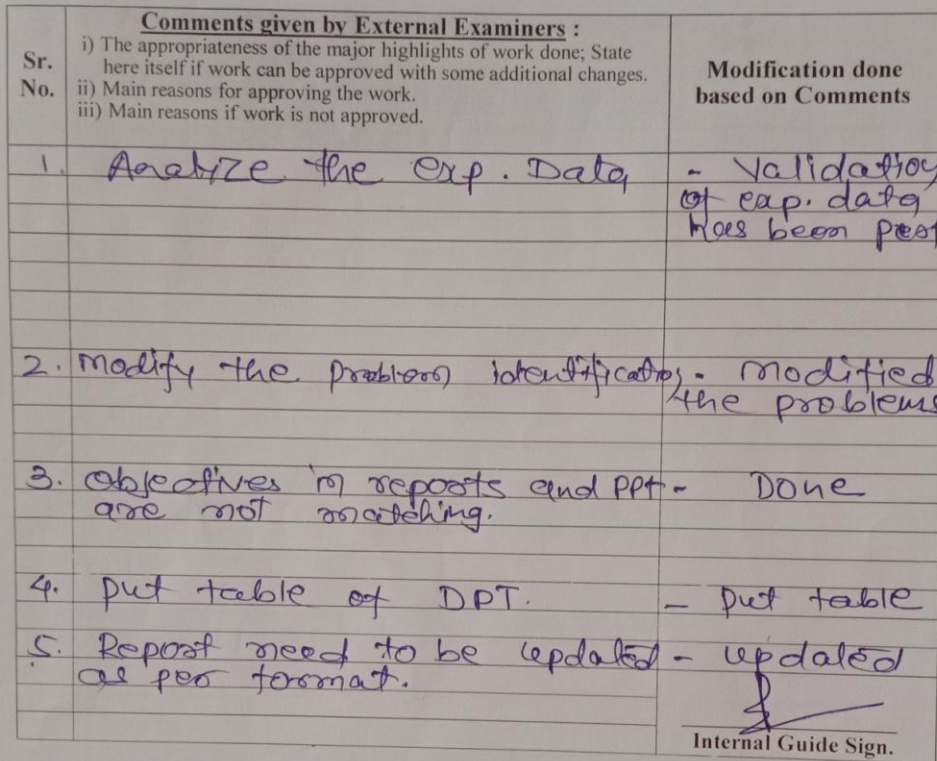 Sr.
No.
Comments given by External Examiners :
i) The appropriateness of the major highlights of work done; State
here itself if work can be approved with some additional changes.
ii) Main reasons for approving the work.
iii) Main reasons if work is not approved.
Modification done
based on Comments
1. Analyze the exp. Data
- Validation
of exp. data
has been
2. Modify the problem identification
- modified
the problems
3. Objectives in reports and PPt
are not matching.
- Done
4. put table of DPT.
- put table
5. Report need to be updated
as per format.
- updated
Internal Guide Sign.